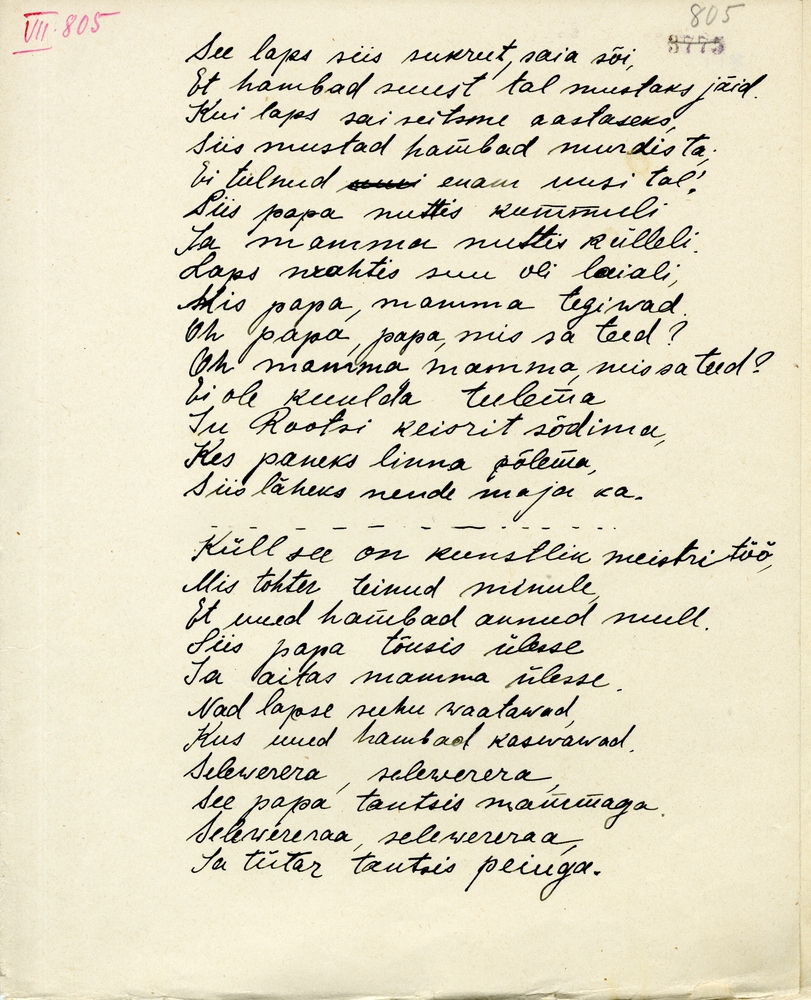 VII 805
805
3775
See laps siis sukrut, saia sõi,
Et hambad suust tal mustaks jäid.
Kui laps sai seitsme aastaseks,
Siis mustad hambad murdis ta,
Ei tulnud enam uusi tal!
Siis papa nuttis kummuli
Ja mamma nuttis külleli.
Laps wahtis suu oli laiali,
Mis papa, mamma tegiwad.
Oh papa, papa, mis sa teed?
Oh mamma mamma, mis sa teed?
Ei ole kuulda tulema
Ju Rootsi keisrit sõdima,
Kes paneks linna põlema,
Siis läheks nende maja ka.
Küll see on kunstlik meistri töö,
Mis tohter teinud minule,
Et uued hambad annud mull.
Siis papa tõusis ülesse
Ja aitas mamma ülesse.
Nad lapse suhu waatawad,
Kus uued hambad kaswawad.
Selewerera, selewerera,
See papa tantsis mammaga.
Selewereraa, selewereraa,
Ja tütar tantsis peiuga.